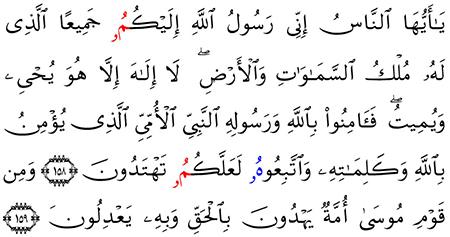 يَـٰٓأَيُّهَا ٱلنَّاسُ إِنِّى رَسُولُ ٱللَّهِ إِلَيْكُمُۥ جَمِيعًا ٱلَّذِى
لَهُۥ مُلْكُ ٱلسَّمَـٰوَٰتِ وَٱلْأَرْضِ ۖ لَآ إِلَـٰهَ إِلَّا هُوَ يُحْىِۦ
وَيُمِيتُ ۖ فَـَٔامِنُوا۟ بِٱللَّهِ وَرَسُولِهِ ٱلنَّبِىِّ ٱلْأُمِّىِّ ٱلَّذِى يُؤْمِنُ
بِٱللَّهِ وَكَلِمَـٰتِهِۦ وَٱتَّبِعُوهُۥ لَعَلَّكُمُۥ تَهْتَدُونَ ١٥٨ وَمِن
قَوْمِ مُوسَىٰٓ أُمَّةٌ يَهْدُونَ بِٱلْحَقِّ وَبِهِۦ يَعْدِلُونَ ١٥٩